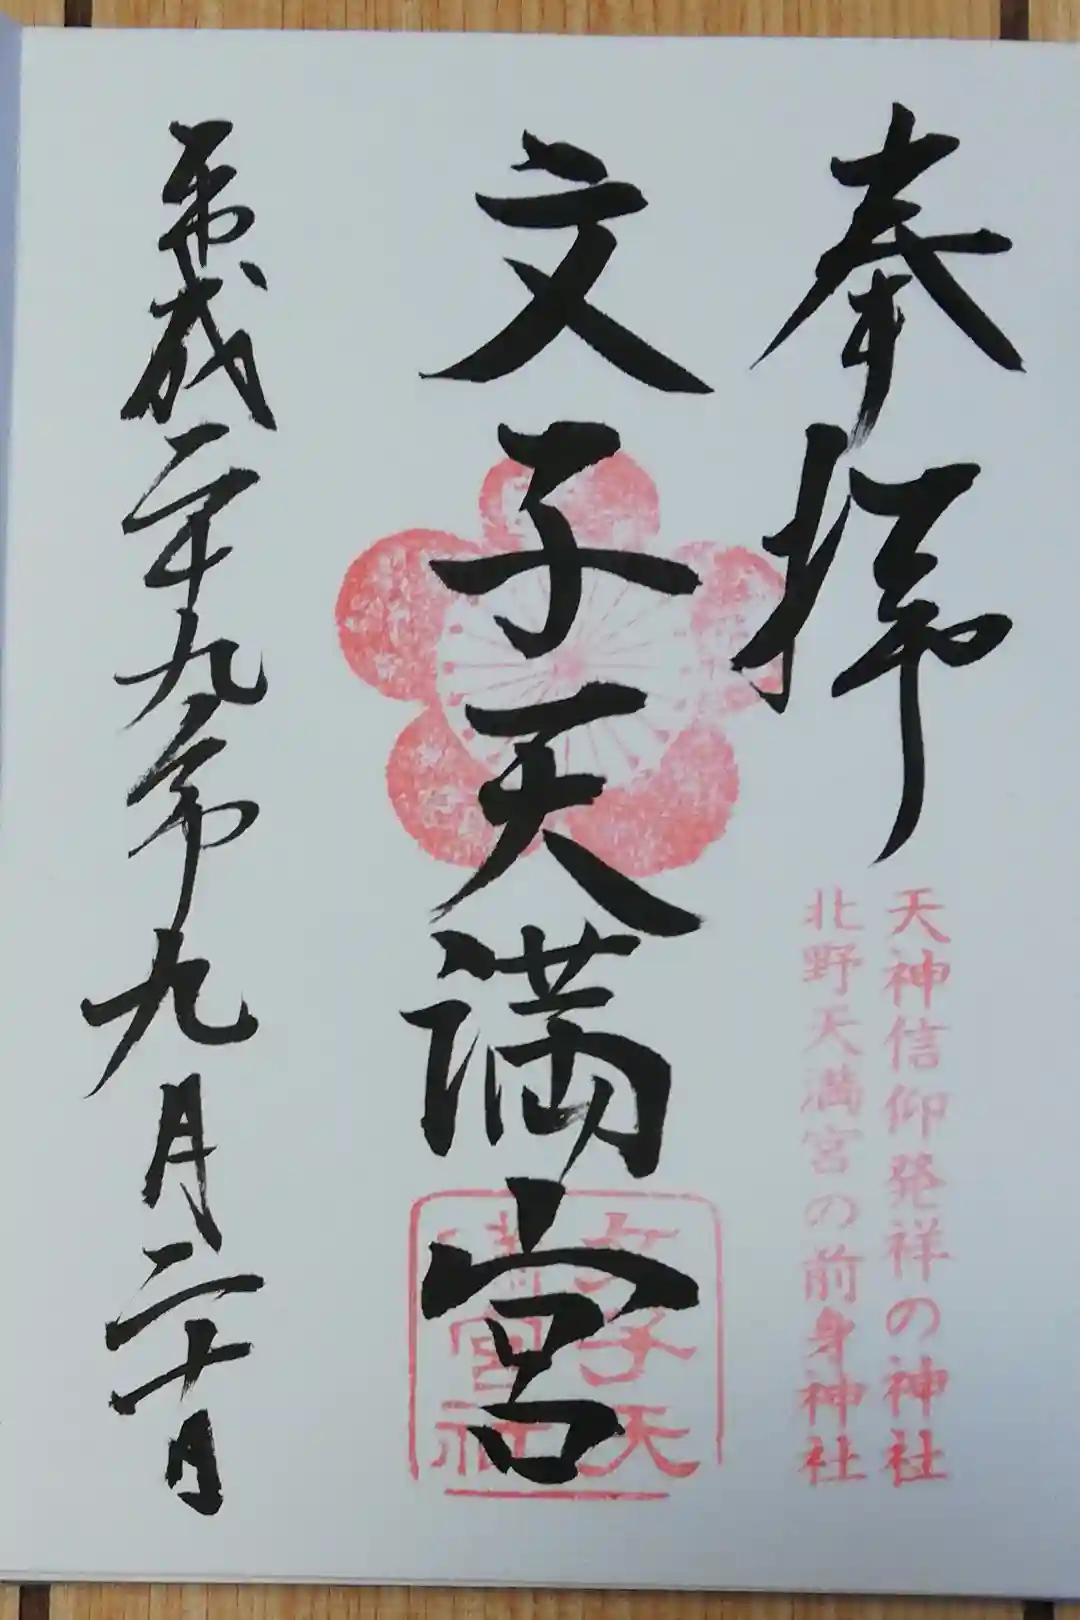 奉拝
天神信仰発祥の神社
北野天満宮の前身神社
文子天満宮
文子天
満宮社
平成二十九年九月二十日